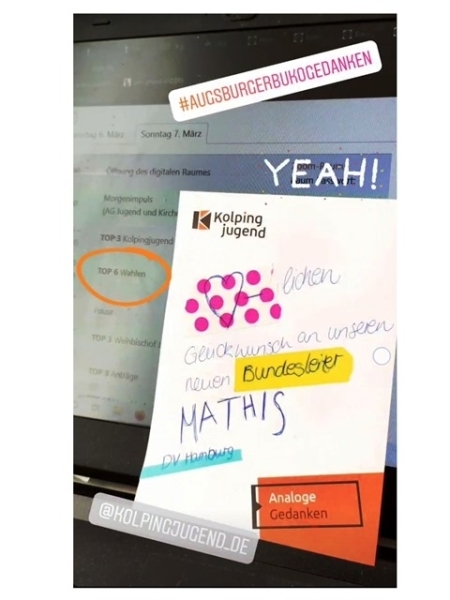 #AUGSBURGERBUKOGEDANKEN
Sonntag 7. März
Öffnung des digitalen Raumes
YEAH!
Morgenimpuls
(AG Jugend und Kirche
TOP 3 Kolpingjugend
TOP 6 Wahlen
Pause
TOP 8 Anträge
Kolping
jugend
lichen
Glückwunsch an unseren
neuen Bundesleiter
MATHIS
DV Hamburg
Analoge
Gedanken
@KOLPINGJUGEND_DE